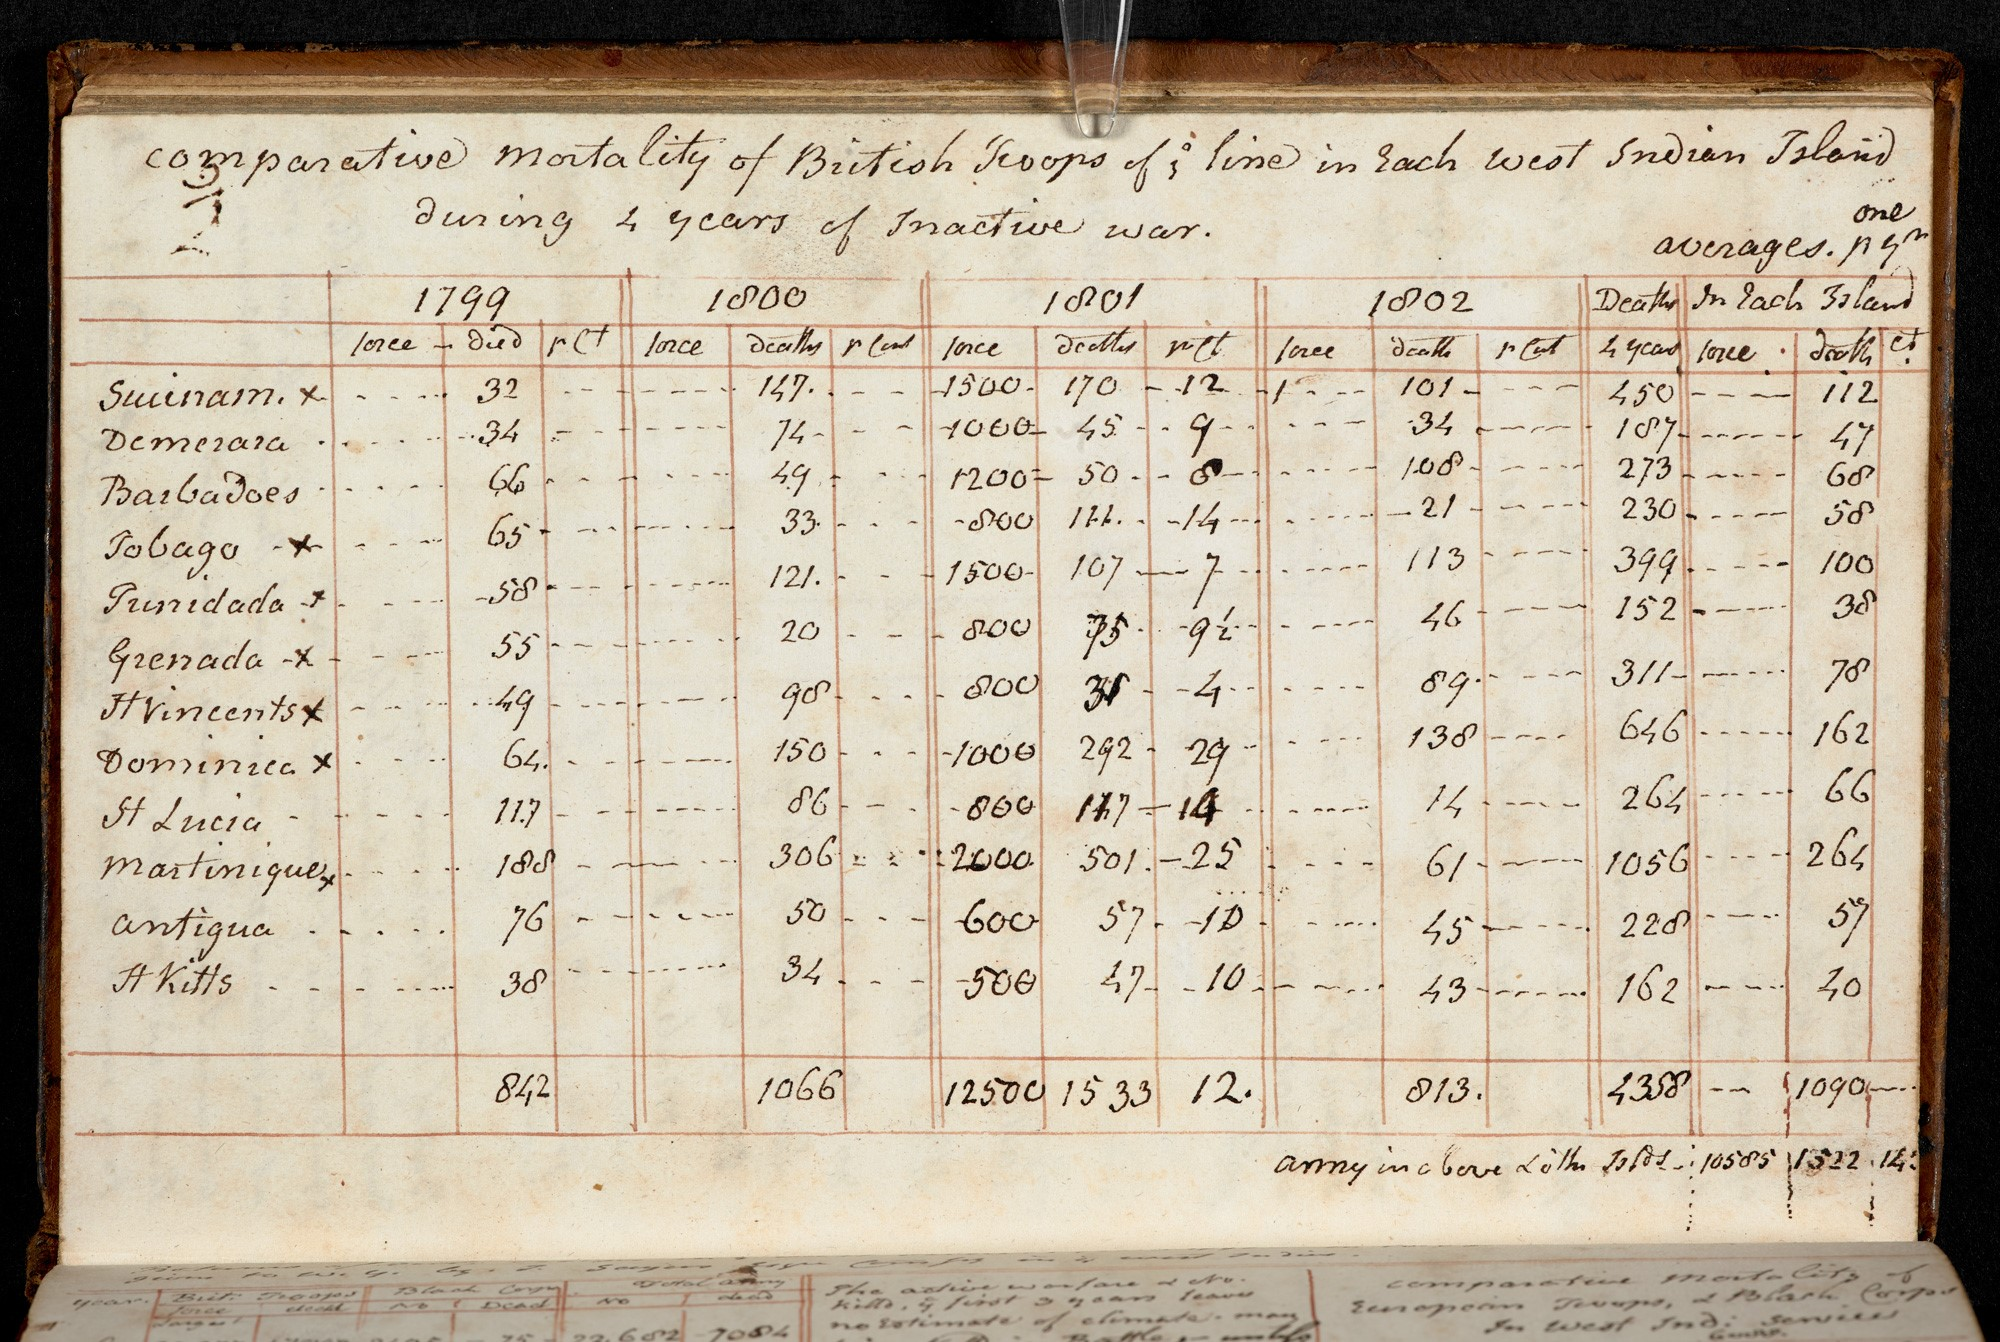 comparative mortality of British Troops of ye line in Each West Indian Island
during 4 years of Inactive war.
one
averages. pr yr
1799 1800 1801 1802 Deaths In Each Island
force - died pr Ct force deaths pr Cent force deaths pr Ct force death pr Cent 4 years force. death ct.
Surinam. x 32 147. 1500 170 12 101 450 112
Demerara 34 74 1000 45 9 34 187 47
Barbadoes 66 49 1200 50 8 108 273 68
Tobago x 65 33. 800 111. 14 21 230 58
Trinidada x 58 121. 1500 107 7 113 399 100
Grenada x 55 20 800 35 9½ 46 152 38
St Vincents x 49 98 800 4 89. 311 78
Dominica x 64. 150 1000 292 29 138 646 162
St Lucia 117 86 800 14 14 264 66
Martinique x 188 306 2000 501. 25 61 1056 264
Antigua 76 50 600 57 10 45 228 57
St Kitts 38 34 500 47 10 43 162 40
842 1066 12500 1533 12. 813. 4358 1090
army in above & othr Islds 10585 1522 14
year. Brit: Troops Black Corps Total army
force death No Dead No dead
22,682 7084
The active warfare & No.
killd, ye first 3 years leave
no Estimate of climate. may
comparative mortality of
European Troops, & Black Corps
In West Ind: Service